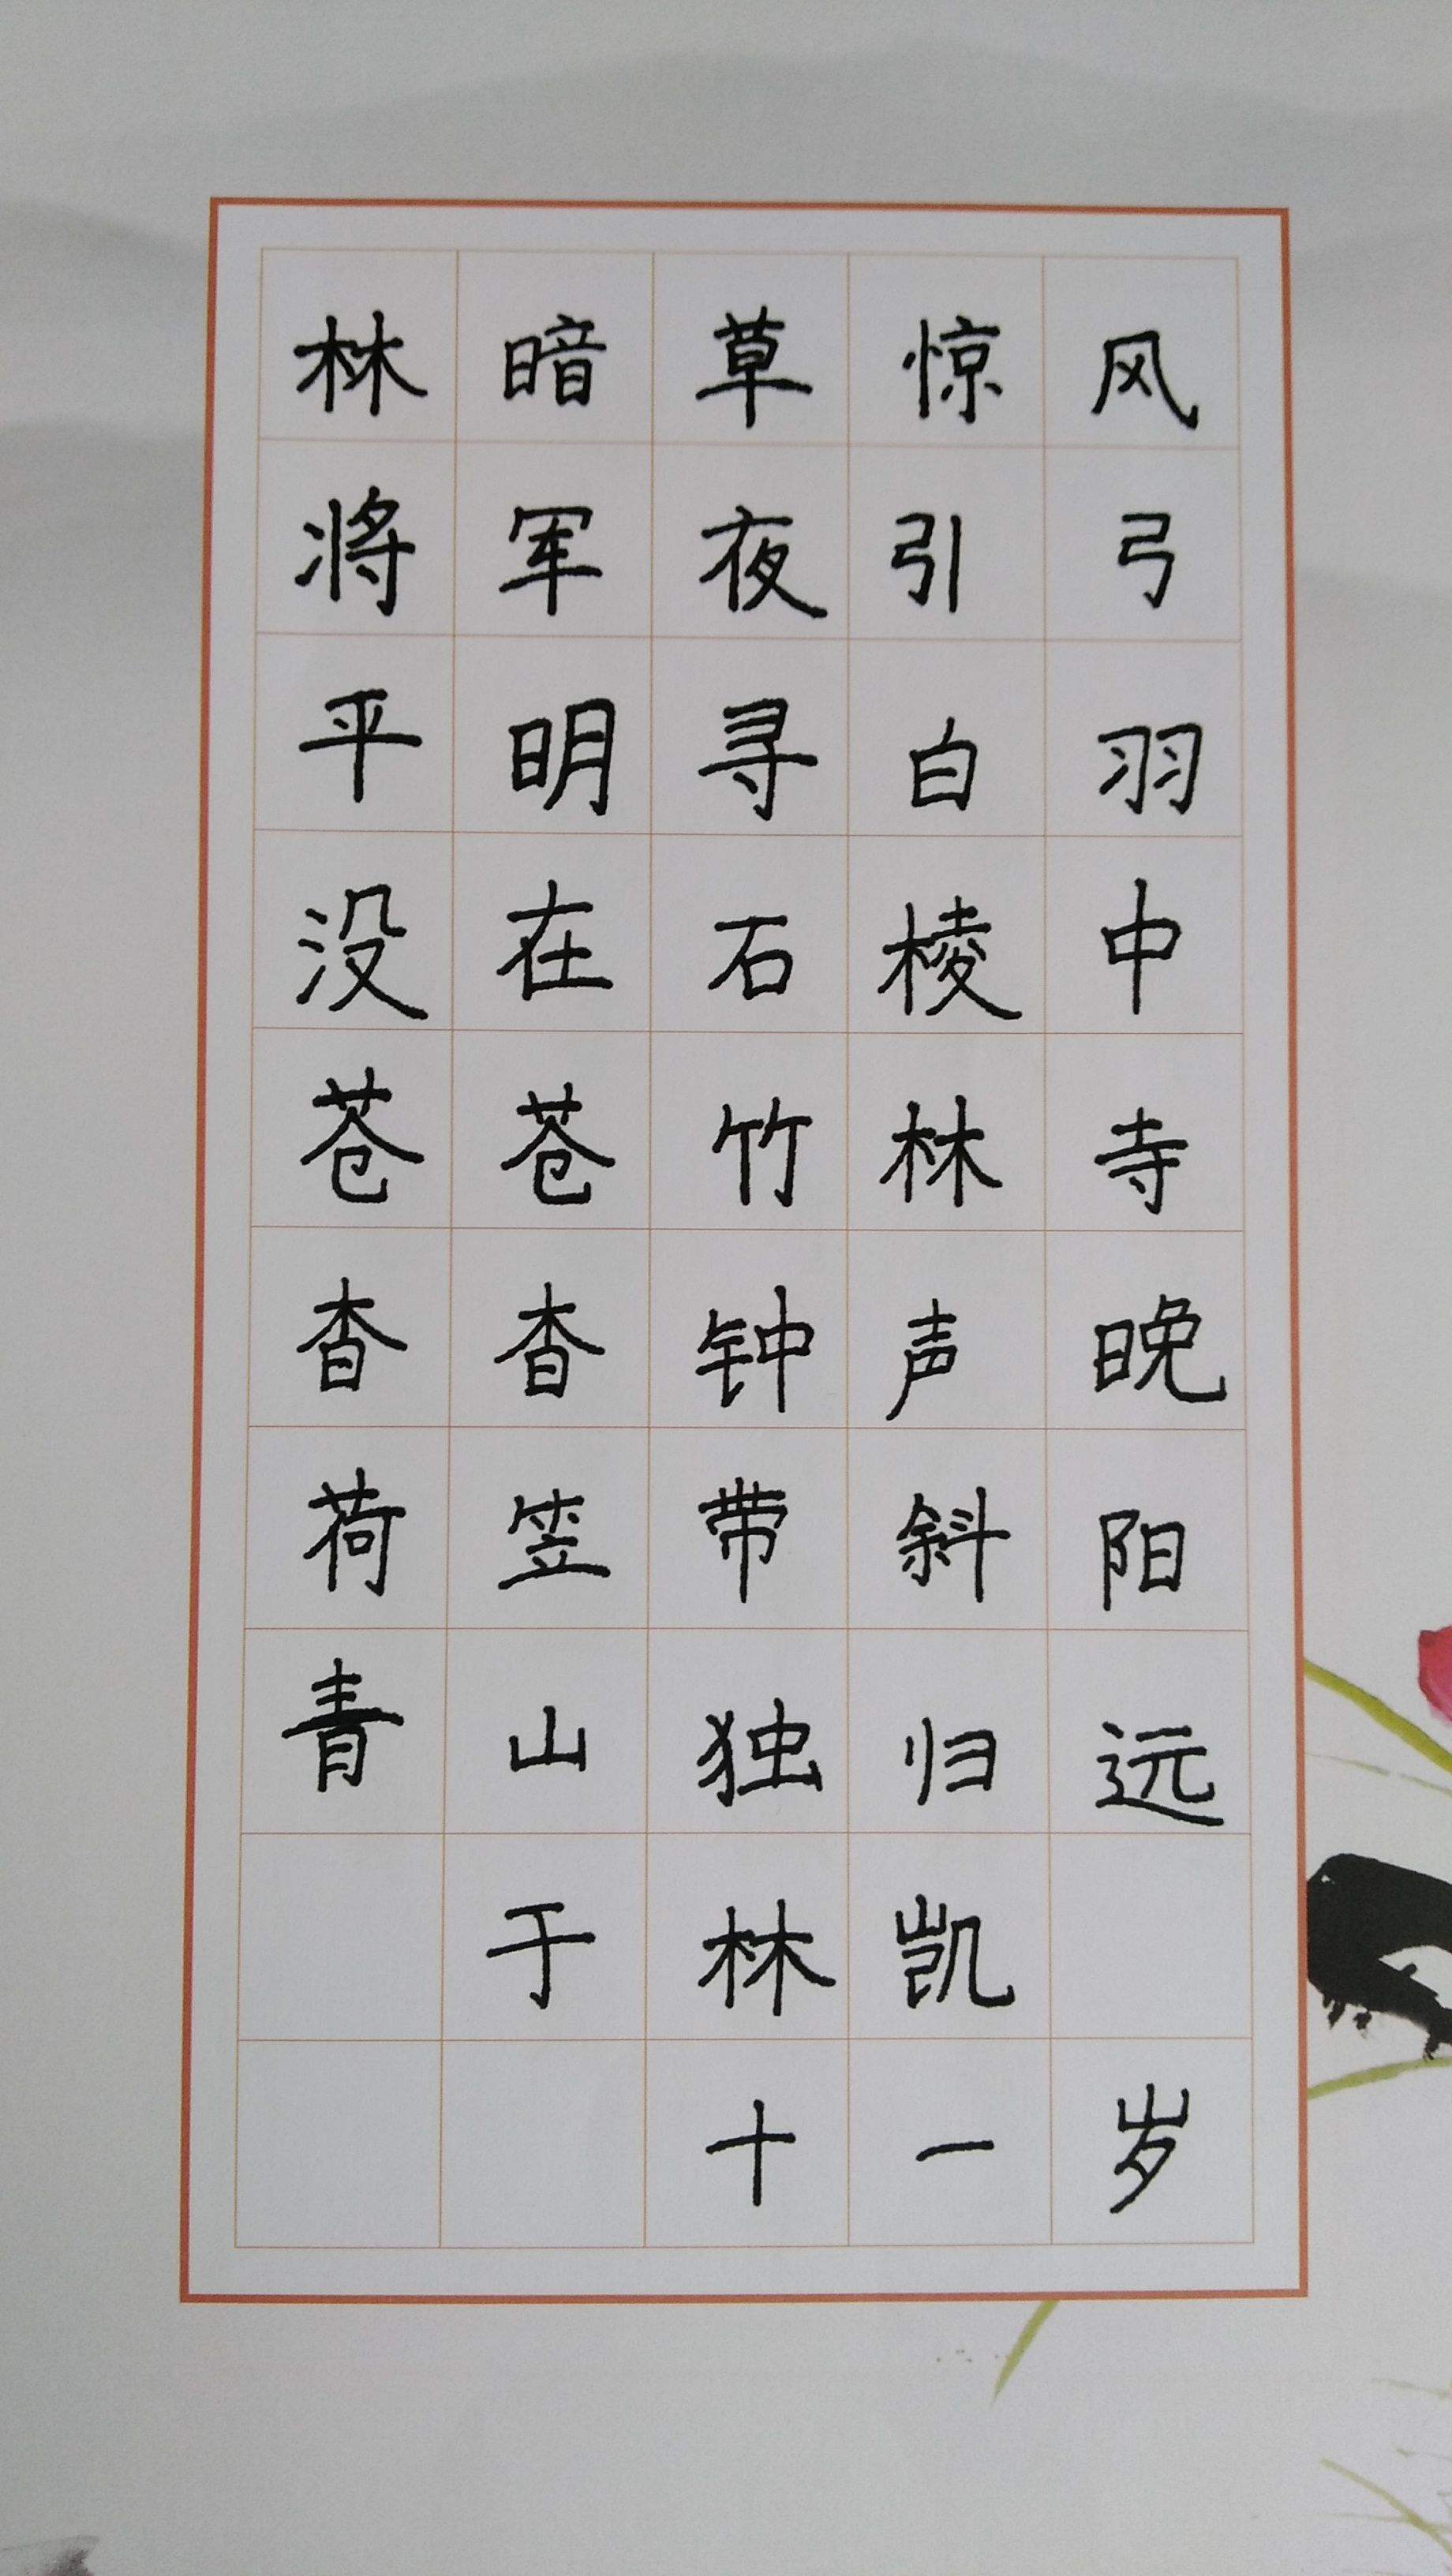 林暗草惊风
将军夜引弓
平明寻白羽
没在石棱中
苍苍竹林寺
杳杳钟声晚
荷笠带斜阳
青山独归远
于林凯
十一岁